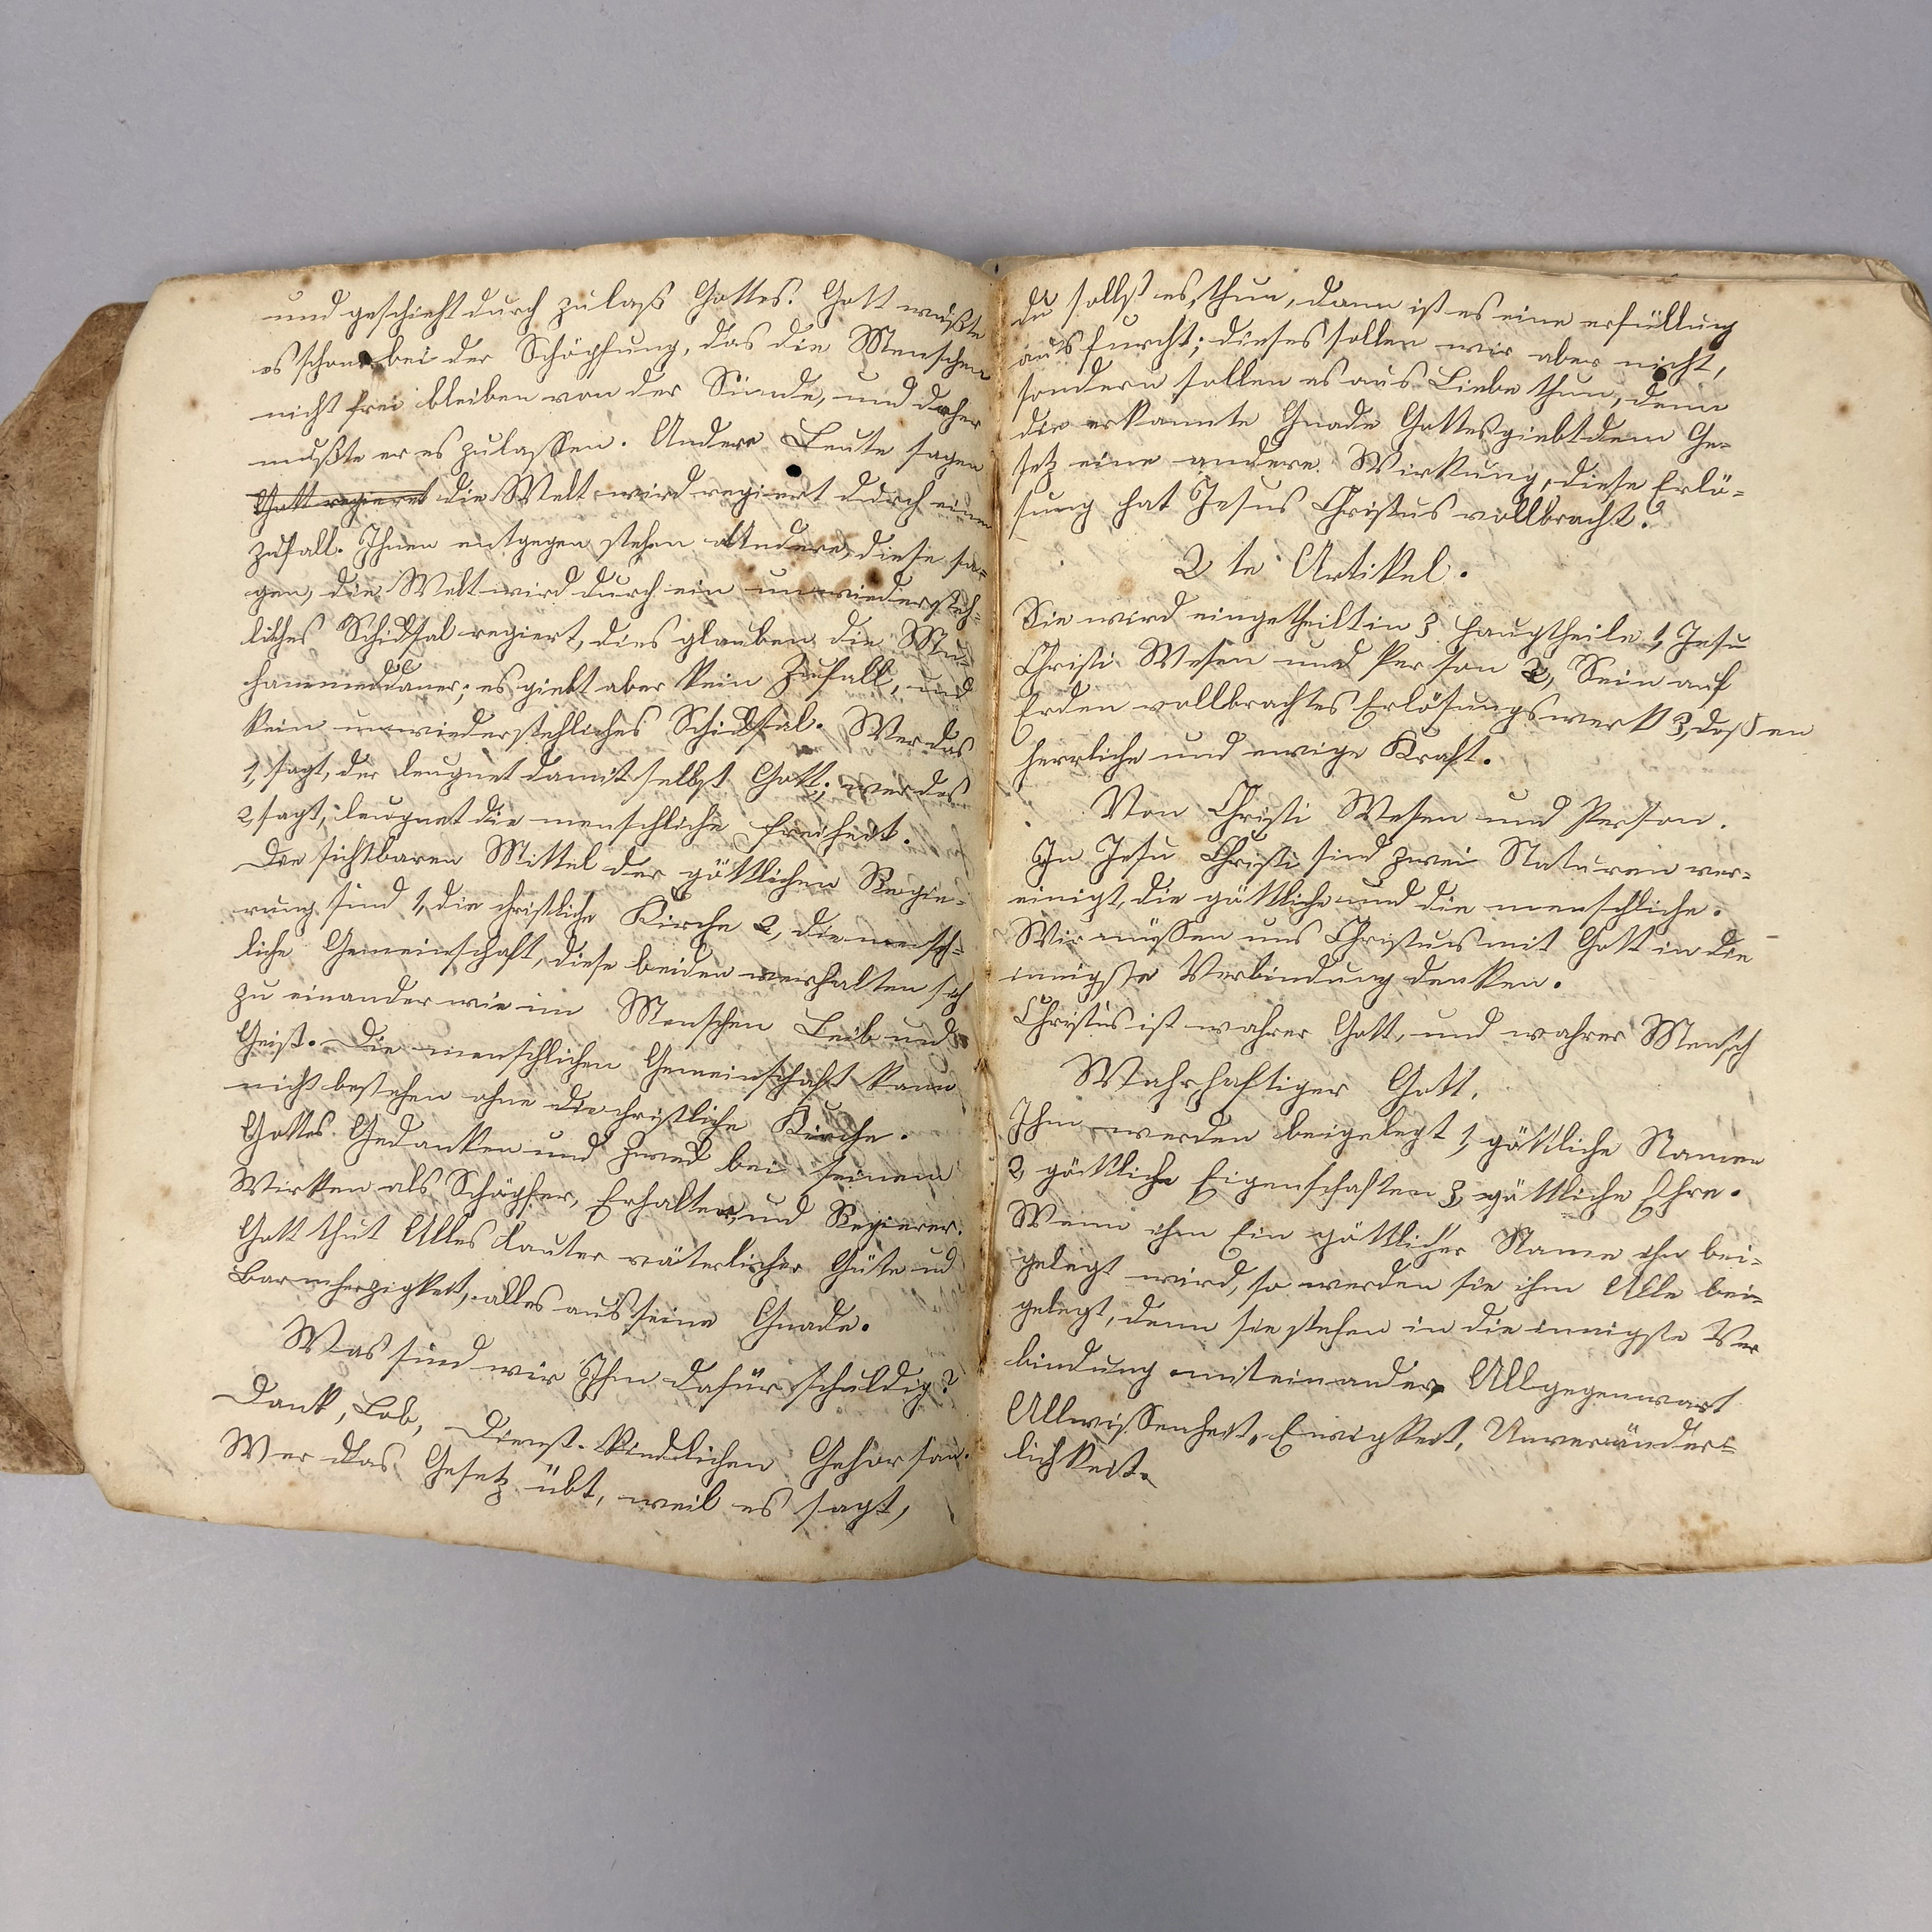 und geschieht durch zulaß Gottes. Gott wußte
es schon bei der Schöpfung, das die Menschen
nicht frei bleiben von der Sünde, und daher
mußte er es zulassen. Andere Leute sagen
Gott regieret die Welt wird regiert durch einen
Zufall. Ihnen entgegen stehen Andere, diese sa=
gen, die Welt wird durch ein unwiedersteh=
liches Schicksal regiert, dies glauben die Mu=
hammeddaner; es giebt aber kein Zufall, und
kein unwiederstehliches Schicksal. Wer das
1, sagt, der leugnet damit selbst Gott; wer das
2, sagt, leugnet die menschliche Freiheit.
Die sichtbaren Mittel der göttlichen Regie=
rung sind 1, die christliche Kirche 2, die mensch=
liche Gemeinschaft, diese beiden verhalten sich
zu einander wie im Menschen Leib und
Geist. Die menschlichen Gemeinschaft kann
nicht bestehen ohne die christliche Kirche.
Gottes Gedanken und Zweck bei seinem
Wirken als Schöpfer, Erhalter, und Regierer.
Gott thut Alles lauter väterlicher Güte und
Barmherzigkeit, alles aus seine Gnade.
Was sind wir Ihm dafür schuldig?
Dank, Lob, Dienst. Kindlichen Gehorsam.
Wer das Gesetz übt, weil es sagt,
du sollst es thun, dann ist es eine erfüllung
aus furcht; dieses sollen wir aber nicht,
sondern sollen es aus Liebe thun, denn
die erkannte Gnade Gottes giebt dem Ge=
setz eine andere Wirkung, diese Erlö=
sung hat Jesus Christus vollbracht.
2 te Artikel.
Sie wird eingetheilt in 3 Hauptheile 1, Jesu
Christi Wesen und Person 2, Sein auf
Erden vollbrachtes Erlösungswerk 3, dessen
herrliche und ewige Kraft.
Von Christi Wesen und Person.
In Jesu Christi sind zwei Naturen ver=
einigt, die göttliche und die menschliche.
Wir müssen uns Christus mit Gott in die
innigste Verbindung denken.
Christus ist wahrer Gott, und wahrer Mensch
Wahrhaftiger Gott.
Ihm werden beigelegt 1, göttliche Namen
2, göttliche Eigenschaften 3, göttliche Ehre.
Wenn ihm Ein göttlicher Name ihn bei=
gelegt wird, so werden sie ihm Alle bei=
gelegt, denn sie stehen in die innigste Ver
bindung miteinander. Allgegenwart
Allwissenheit, Ewigkeit, Unveränder=
lichkeit.